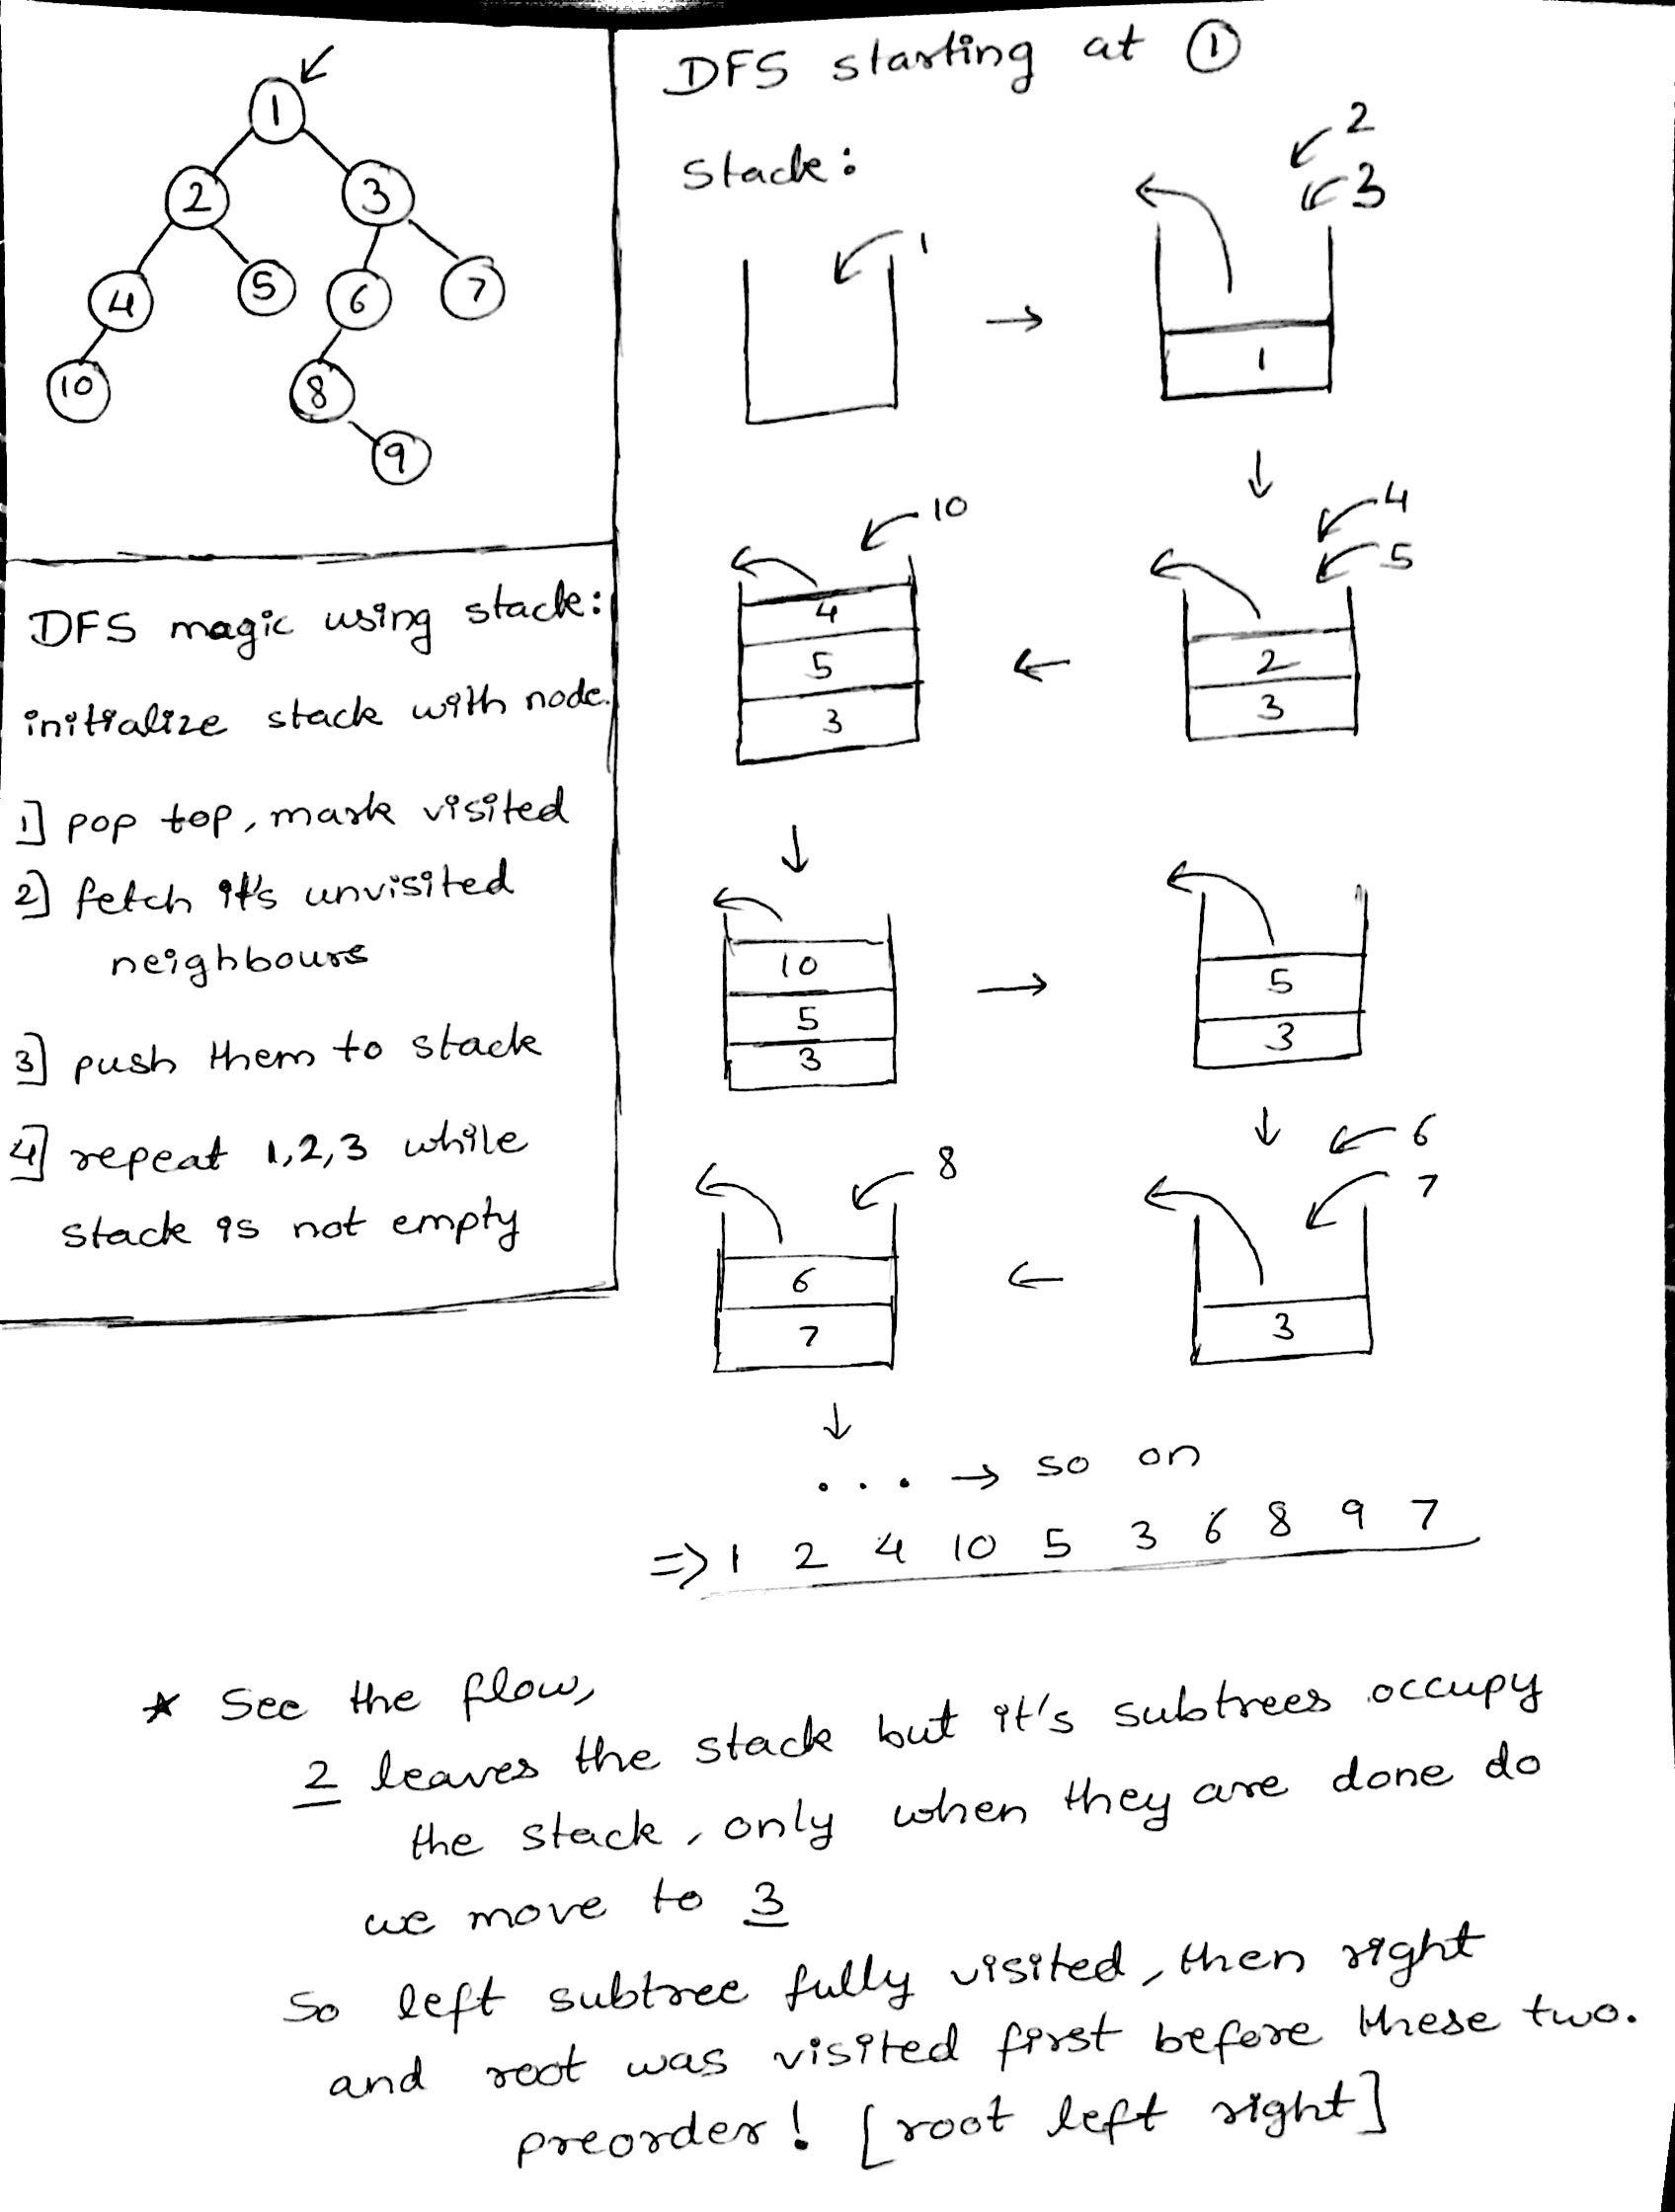 1
2 3
4 5 6 7
10 8
9
DFS magic using stack:
initialize stack with node.
1] pop top, mark visited
2] fetch it's unvisited
neighbours
3] push them to stack
4] repeat 1,2,3 while
stack is not empty
DFS starting at 1
Stack:
1
2
3
1
4
5
2
3
10
4
5
3
10
5
3
5
3
6
7
3
8
6
7
... → so on
⇒ 1 2 4 10 5 3 6 8 9 7
* See the flow,
2 leaves the stack but it's subtrees occupy
the stack, only when they are done do
we move to 3
So left subtree fully visited, then right
and root was visited first before these two.
preorder! [root left right]